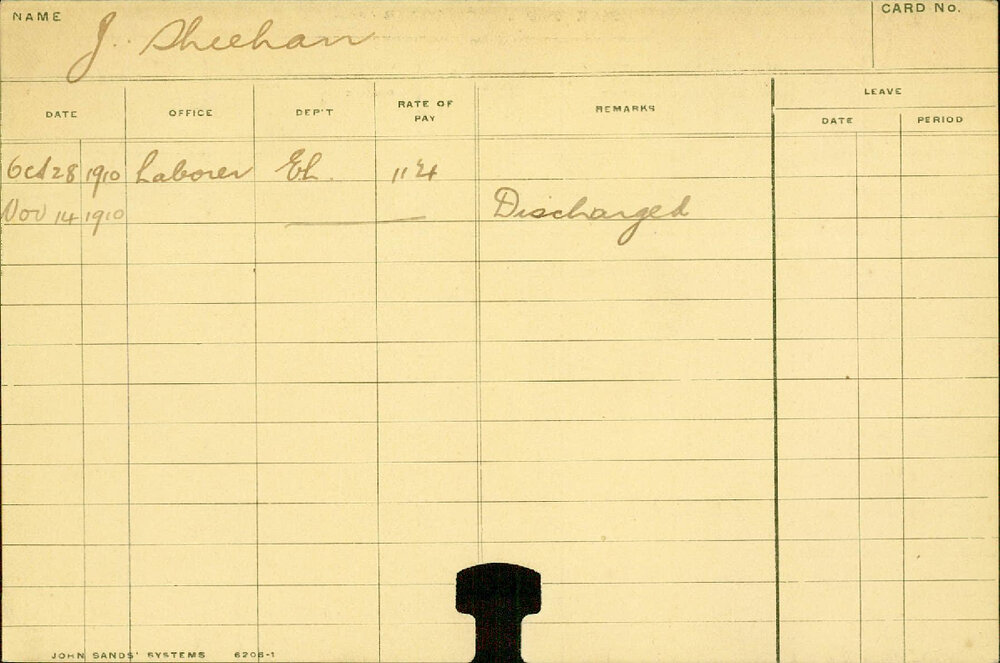 NAME J. Sheehan CARD No.
DATE OFFICE DEP'T RATE OF PAY REMARKS LEAVE
DATE PERIOD
Oct 28 1910 Laborer EL.
Nov 14 1910 Discharged
JOHN SANDS' SYSTEMS 6206-1